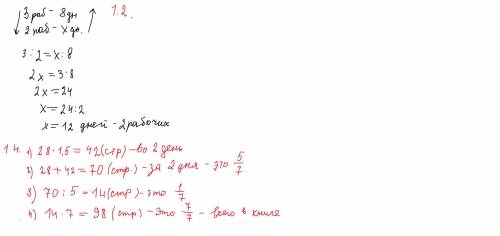 1.2.
3 раб - 8 дн
2 раб - х дн.
3:2=х:8
2х=3·8
2х=24
х=24:2
х=12 дней - 2 рабочих
1.4. 1) 28·1,5=42(стр)-во 2 день
2) 28+42=70(стр.)-за 2 дня - это 5/7
3) 70:5=14(стр)-это 1/7
4) 14·7=98(стр)-это 7/7 - всего в книге